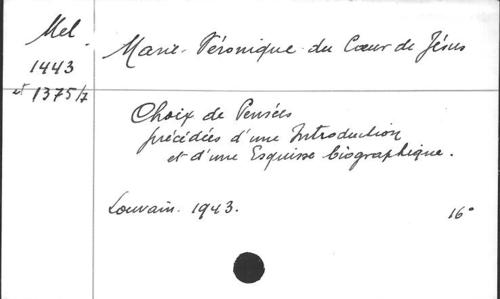 Mel.
1443
et 1375/7
Marie-Véronique du Cœur de Jésus
Choix de Pensées
précédées d'une Introduction
et d'une Esquisse biographique.
Louvain. 1943.
16°